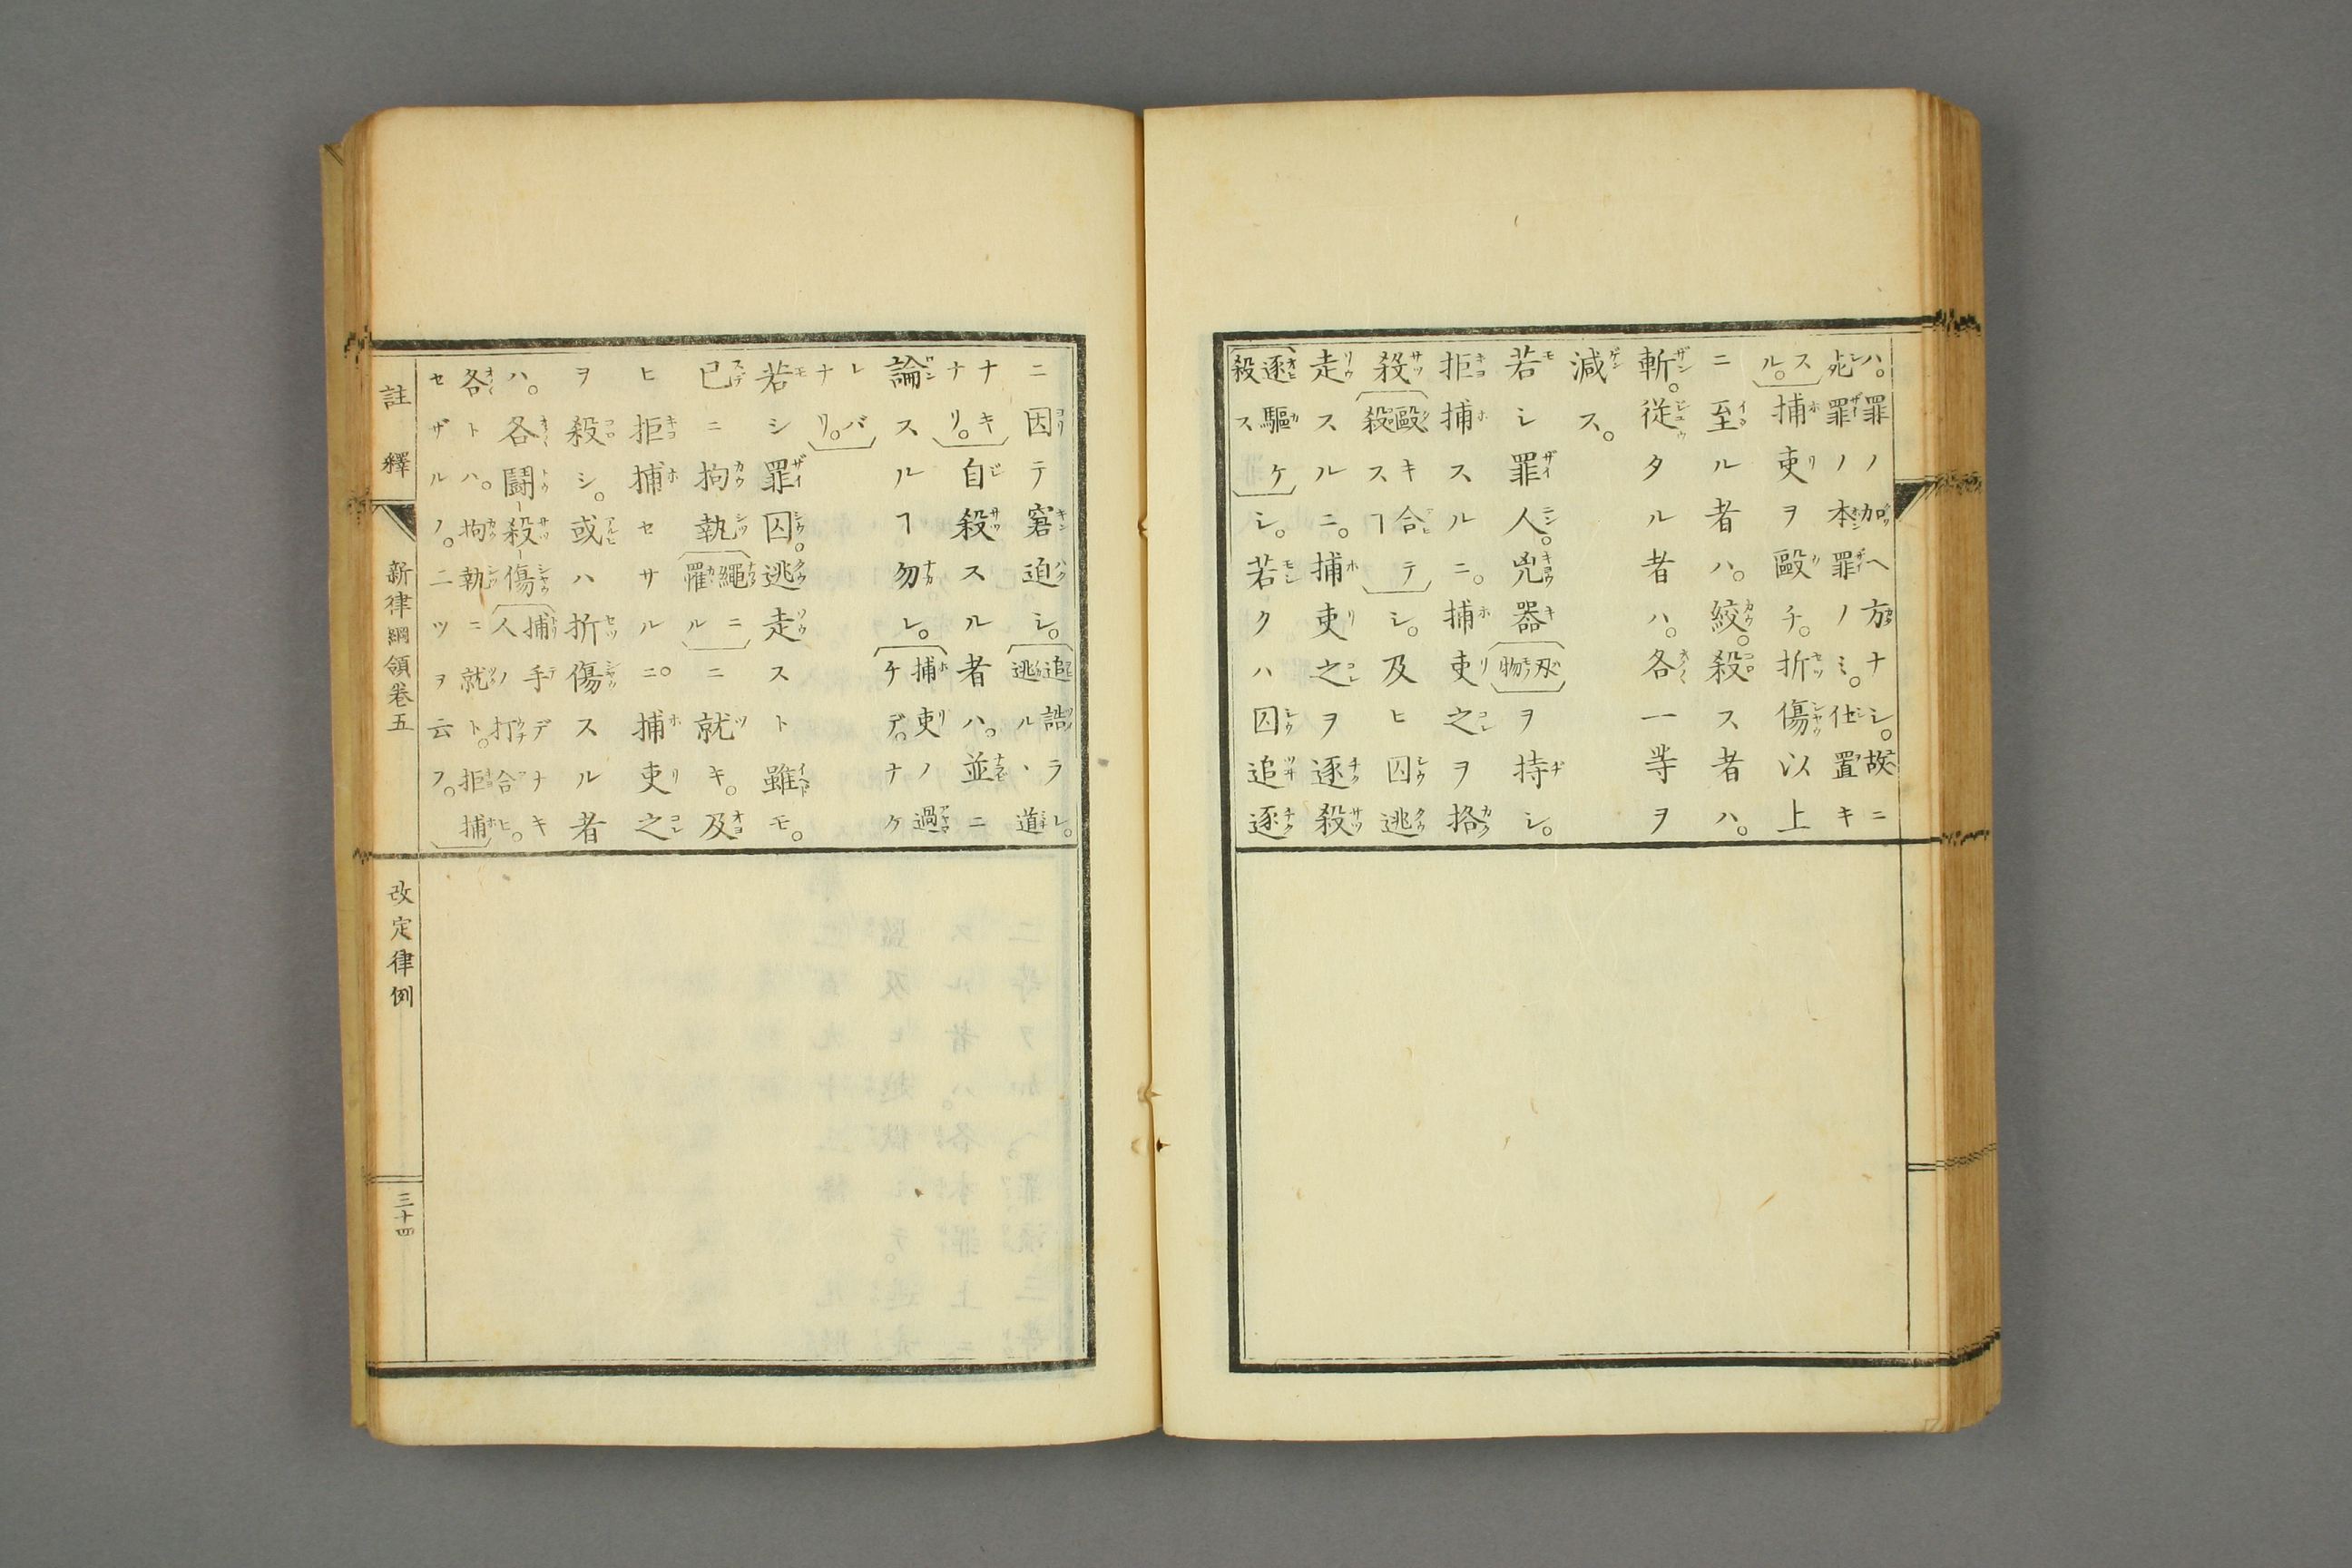 ハ。罪ノ加ヘ方ナシ。故ニ
死罪ノ本罪ノミ。仕置キ
スル。捕吏ヲ毆チ。折傷以上
ニ至ル者ハ。絞。殺ス者ハ。
斬。從タル者ハ。各一等ヲ
減ス。
若シ罪人。兇器刄物ヲ持シ。
拒捕スルニ。捕吏之ヲ挌
殺毆キ合テ殺スヿシ。及ヒ囚逃
走スルニ。捕吏之ヲ逐殺
逐驅ケ殺スシ。若クハ囚追逐
ニ因テ窘迫シ。追詰ラレ。逃ル、道
ナキナリ。自殺スル者ハ。並ニ
論スルヿ勿レ。捕吏ノ過チデ。ナケ
レバナリ。
若シ罪囚。逃走スト雖モ。
已ニ拘執繩ニ罹ルニ就キ。及
ヒ拒捕セサルニ。捕吏之
ヲ殺シ。或ハ折傷スル者
ハ。各鬭殺傷捕手デナキ人ノ打合ヒ。
各トハ。拘執ニ就ト。拒捕
セザルノ。二ツヲ云フ。
註釋 新律綱領卷五 改定律例 三十四